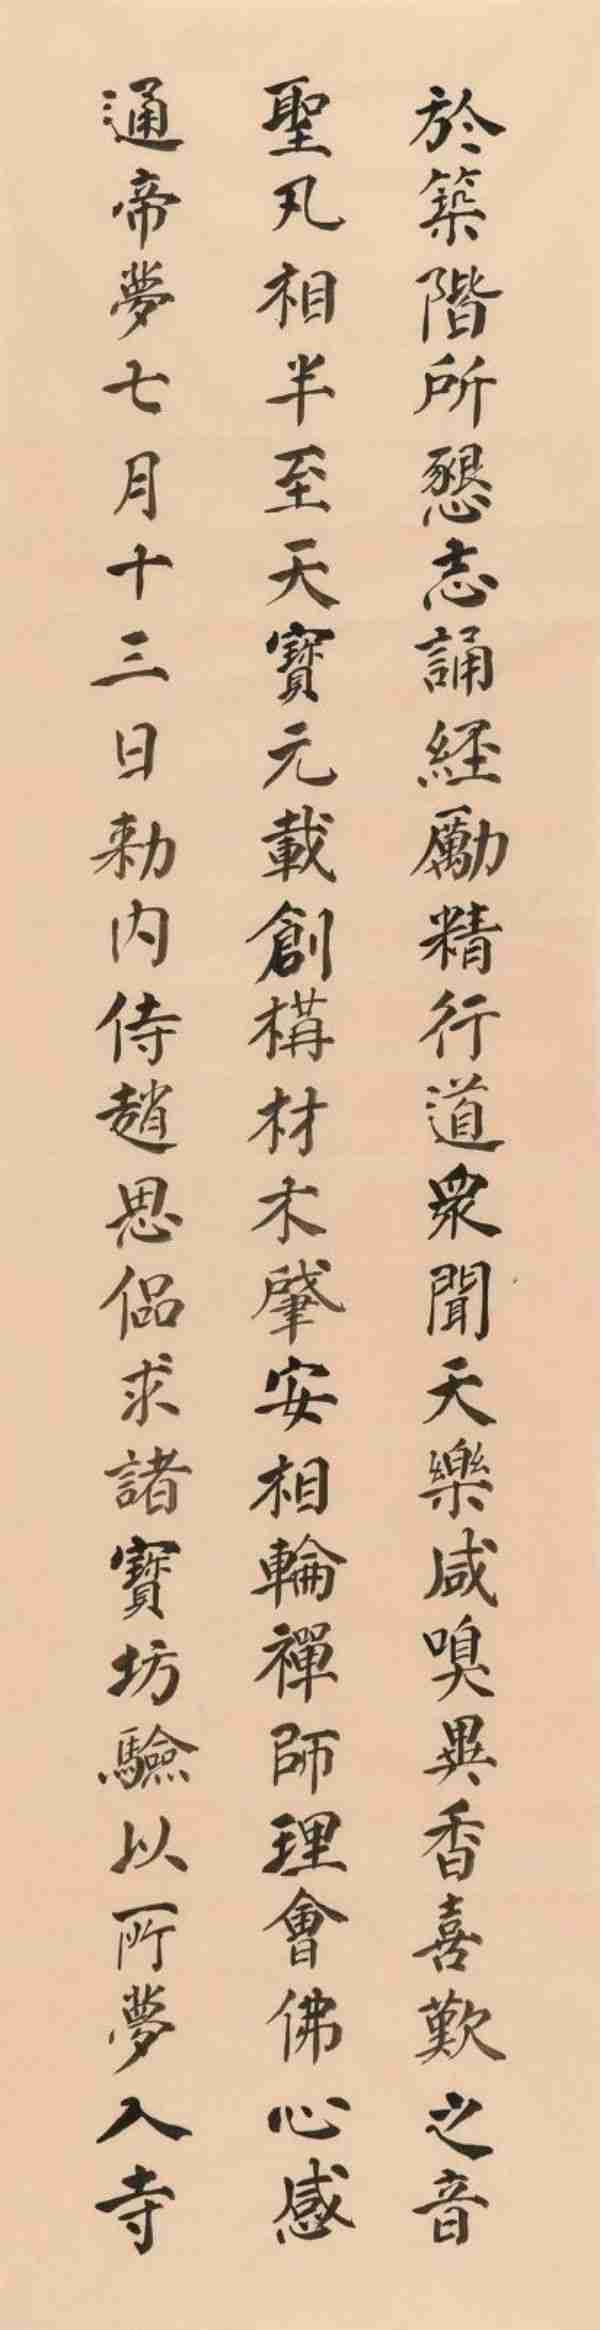 於築階所懇志誦経勵精行道衆聞天樂咸嗅異香喜歎之音
聖凡相半至天寶元載創構材木肇安相輪禪師理會佛心感
通帝夢七月十三日勅内侍趙思侶求諸寶坊驗以所夢入寺